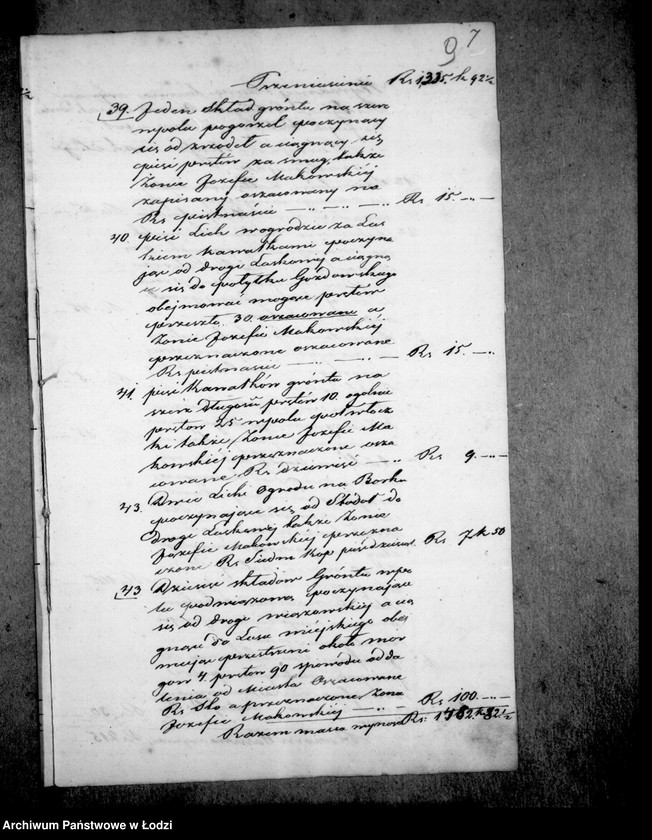 97
Przeniesienie Rs 1335 k 92½
39. Jeden Skład gróntu na szer
wpolu pogorzel poczynaiący
się od zrodeł a ciągnący się
pięć prętów za smug, także
Żonie Jozefie Makowskiéj
zapisany oszacowany na
Rs piętnaście Rs 15.
40. pięć Lich wogrodzie za Las
kiem kawałkami poczyna
jąc od drogi Laskowéj a ciągną
się do
obejmować mogące prętów
przeszło 30. oszacowane a
Żonie Jozefie Makowskiéj
przeznaczone oszacowane
Rs piętnaście Rs 15.
41. pięć Kawałków gróntu na
szerz długości prętów 10. ogolnie
prętów 25 wpolu
ki także Żonie Jozefie Ma
kowskiéj przeznaczone osza
cowane Rs dziewięć Rs 9.
43. Dwie Lichi Ogrodu na Borku
poczynające się od Stodoł do
drogi Laskowéj także Żonie
Jozefie Makowskiéj przezna
czone Rs Siedm kop pięćdziesiąt Rs 7 k 50
43 Dziesięć składów Gróntu wpo
lu poczynające
się od drogi a cią
gnące do Lasu miejskiego obej
mujące przestrzeni około mor
gow 4. prętow 90 spowodu odda
lenia od Miasta Oszacowane
Rs Sto a przeznaczone Żonie
Jozefie Makowskiéj Rs 100.
Razem massa wynosi Rs: 1482 k 42½
Archiwum Państwowe w Łodzi